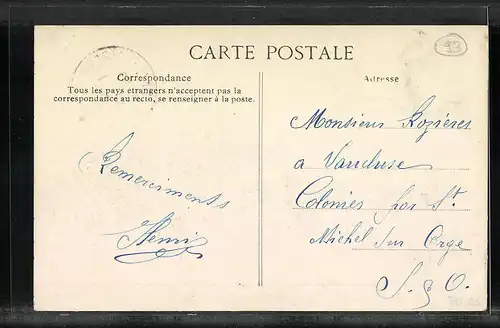 CARTE POSTALE
Correspondance
Tous les pays étrangers n'acceptent pas la
correspondance au recto, se renseigner à la poste.
Remerciments
Henri
Adresse
Monsieur Rozières
a Vaucluse
Colonies par St.
Michel sur Orge
S. & O.